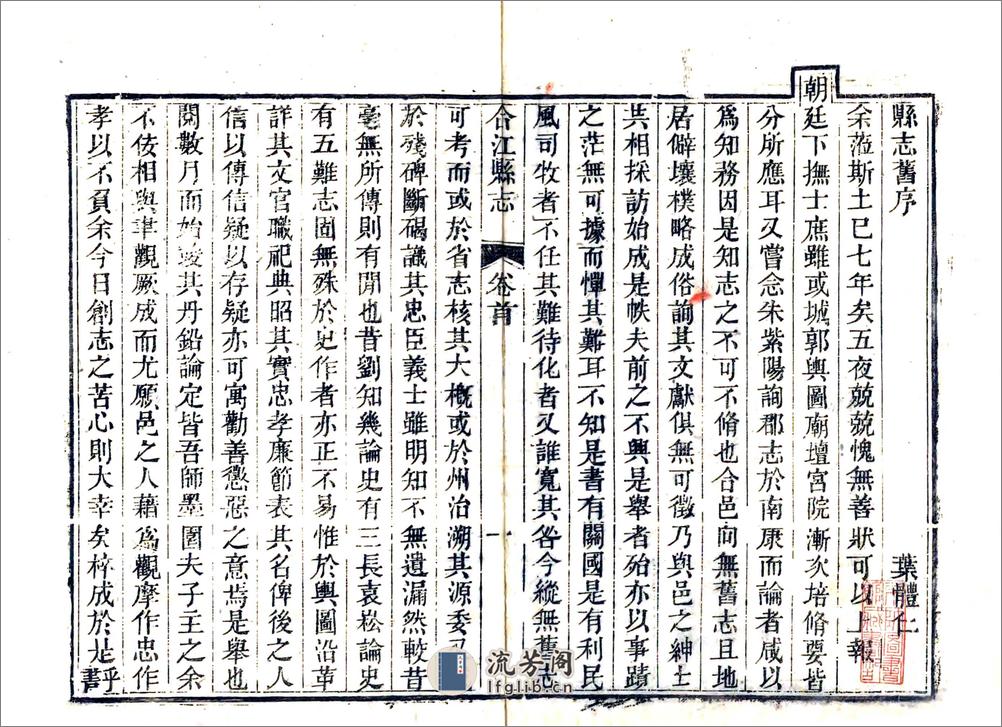 縣志舊序
葉體仁
余蒞斯土已七年矣五夜兢兢愧無善狀可以上報
朝廷下撫士庶雖或城郭輿圖廟壇宮院漸次培脩要皆
分所應耳又嘗念朱紫陽詢郡志於南康而論者咸以
爲知務因是知志之不可不脩也合邑向無舊志且地
居僻壤樸略成俗詢其文獻俱無可徵乃與邑之紳士
共相採訪始成是帙夫前之不興是舉者殆亦以事蹟
之茫無可據而憚其難耳不知是書有關國是有利民
風司牧者不任其難待化者又誰寬其咎今縱無舊志
合江縣志
卷首
一
可考而或於省志核其大概或於州治溯其源委
於殘碑斷碣識其忠臣義士雖明知不無遺漏然較昔
毫無所傳則有閒也昔劉知幾論史有三長袁崧論史
有五難志固無殊於史作者亦正不易惟於輿圖沿革
詳其文官職祀典昭其實忠孝廉節表其名俾後之人
信以傳信疑以存疑亦可寓勸善懲惡之意焉是舉也
閱數月而始竣其丹鉛論定皆吾師墨圃夫子主之余
不佞相與聿觀厥成而尤願邑之人藉爲觀摩作忠作
孝以不負余今日創志之苦心則大幸矣梓成於是乎
書
流芳閣
lfglib.cn